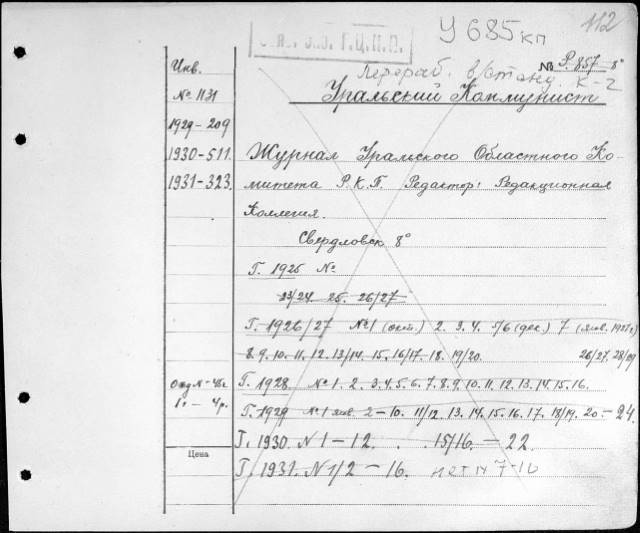 У 685 кп
112
№ Р.857 8°
Перераб. в/стану. К-2
Уральский Коммунист
Инв.
№ 1131
1929-209
1930-511.
1931-323.
Журнал Уральского Областного Ко-
митета Р.К.П. Редактор: Редакционная
Коллегия.
Свердловск 8°
Г. 1925 №
23/24. 25. 26/27
Г. 1926/27 №1 (окт.) 2. 3. 4. 5/6 (дек.) 7 (янв. 1927г)
8. 9. 10. 11. 12. 13/14. 15. 16/17. 18. 19/20. 26/27. 28/29
Г. 1928 № 1. 2. 3. 4. 5. 6. 7. 8. 9. 10. 11. 12. 13. 14. 15. 16.
Г. 1929 №1 янв. 2-10. 11/12. 13. 14. 15. 16. 17. 18/19. 20.-24.
Г. 1930. N 1-12. . 15/16.-22.
Г. 1931. N 1/2-16. нет N 7-10
Цена